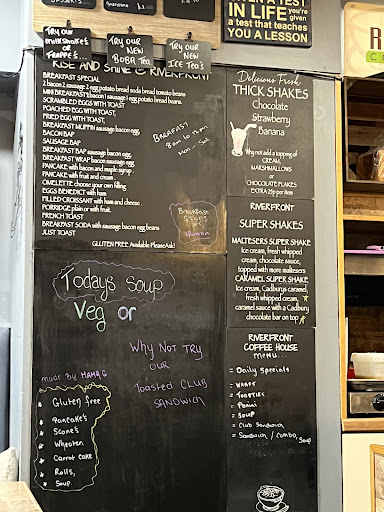 IN LIFE you're
given
a test that teaches
YOU A LESSON
Try our
milkshake's
or
FRAPPE's...
Try our
NEW
BOBA Tea
Try our
NEW
ICE Tea's
RISE AND SHINE @ RIVERFRONT
BREAKFAST SPECIAL
2 bacon 2 sausage 2 egg potato bread soda bread tomato beans
MINI BREAKFAST 1 bacon 1 sausage 1 egg potato bread beans.
SCRAMBLED EGGS WITH TOAST
POACHED EGG WITH TOAST,
FRIED EGG WITH TOAST,
BREAKFAST MUFFIN sausage bacon egg,
BACON BAP
SAUSAGE BAP
BREAKFAST BAP sausage bacon egg,
BREAKFAST WRAP bacon sausage egg
PANCAKE, with bacon and maple syrup .
PANCAKE with fruit and cream .
OMELETTE choose your own filling
EGGS BENEDICT with ham
FILLED CROISSANT with ham and cheese .
PORRIDGE plain or with fruit.
FRENCH TOAST
BREAKFAST SODA with sausage bacon egg beans
JUST TOAST
GLUTEN FREE Available Please Ask!
BREAKFAST
Mon - Sat
Breakfast
Delicious Fresh
THICK SHAKES
Chocolate
Strawberry
Banana
Why not add a topping of
CREAM,
MARSHMALLOWS
or
CHOCOLATE FLAKES
EXTRA 25p per item
RIVERFRONT
SUPER SHAKES
MALTESERS SUPER SHAKE
Ice cream, fresh whipped
cream, chocolate sauce,
topped with more maltesers
CARAMEL SUPER SHAKE
Ice cream, Cadburys caramel,
fresh whipped cream,
caramel sauce with a Cadbury
chocolate bar on top
Todays soup
Veg or
Why Not TRY
OUR
Toasted CLUB
SANDWICH
made By MAMA G
Gluten free
Pancake's
Scone's
Wheaten
Carrot Cake
Rolls,
Soup
RIVERFRONT
COFFEE HOUSE
MENU...
- Daily Specials
- WRAPS
- TOASTIES
- Panini
- SOUP
- Club Sandwich
- Sandwich / Combo,
Soup